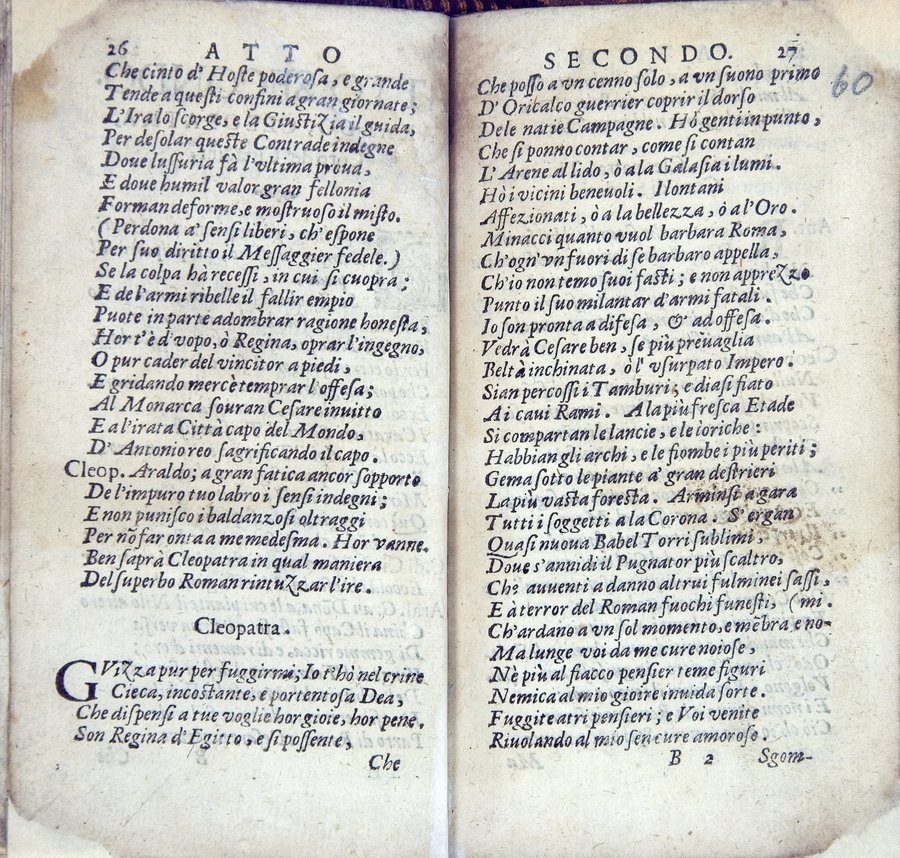 26 ATTO
Che cinto d'Hoste poderosa, e grande
Tende a questi confini a gran giornate;
L'Ira lo scorge, e la Giustizia il guida,
Per desolar queste Contrade indegne
Doue lussuria fà l'vltima proua,
E doue humil valor gran fellonia
Forman deforme, e mostruoso il misto.
(Perdona a' sensi liberi, ch'espone
Per suo diritto il Messaggier fedele.)
Se la colpa hà recessi, in cui si cuopra;
E de l'armi ribelle il fallir empio
Puote in parte adombrar ragione honesta,
Hor t'è d'vopo, ò Regina, oprar l'ingegno,
O pur cader del vincitor a piedi,
E gridando mercè temprar l'offesa;
Al Monarca souran Cesare inuitto
E a l'irata Città capo del Mondo,
D'Antonio reo sagrificando il capo.
Cleop. Araldo; a gran fatica ancor sopporto
De l'impuro tuo labro i sensi indegni;
E non punisco i baldanzosi oltraggi
Per nõ far onta a me medesma. Hor vanne.
Ben saprà Cleopatra in qual maniera
Del superbo Roman rintuzzar l'ire.
Cleopatra.
GVizza pur per fuggirmi; Io t'hò nel crine
Cieca, incostante, e portentosa Dea,
Che dispensi a tue voglie hor gioie, hor pene.
Son Regina d'Egitto, e sì possente,
Che
SECONDO. 27
60
Che posso a vn cenno solo, a vn suono primo
D'Oricalco guerrier coprir il dorso
Dele natie Campagne. Hò genti in punto,
Che si ponno contar, come si contan
L'Arene al lido, ò a la Galasia i lumi.
Hò i vicini beneuoli. I lontani
Affezionati, ò a la bellezza, ò a l'Oro.
Minacci quanto vuol barbara Roma,
Ch'ogn'vn fuori di se barbaro appella,
Ch'io non temo suoi fasti; e non apprezzo
Punto il suo milantar d'armi fatali.
Io son pronta a difesa, & ad offesa.
Vedrà Cesare ben, se più preuaglia
Beltà inchinata, ò l'vsurpato Impero.
Sian percossi i Tamburi; e diasi fiato
A i caui Rami. A la più fresca Etade
Si compartan le lancie, e le loriche:
Habbian gli archi, e le fiombe i più periti;
Gema sotto le piante a' gran destrieri
La più vasta foresta. Arminsi a gara
Tutti i soggetti a la Corona. S'ergan
Quasi nuoua Babel Torri sublimi,
Doue s'annidi il Pugnator più scaltro,
Che auuenti a danno altrui fulminei sassi,
E à terror del Roman fuochi funesti, (mi.
Ch'ardano a vn sol momento, e mẽbra e no-
Ma lunge voi da me cure noiose,
Nè più al fiacco pensier teme figuri
Nemica al mio gioire inuida sorte.
Fuggite atri pensieri; e Voi venite
Riuolando al mio sen cure amorose.
B 2 Sgom-